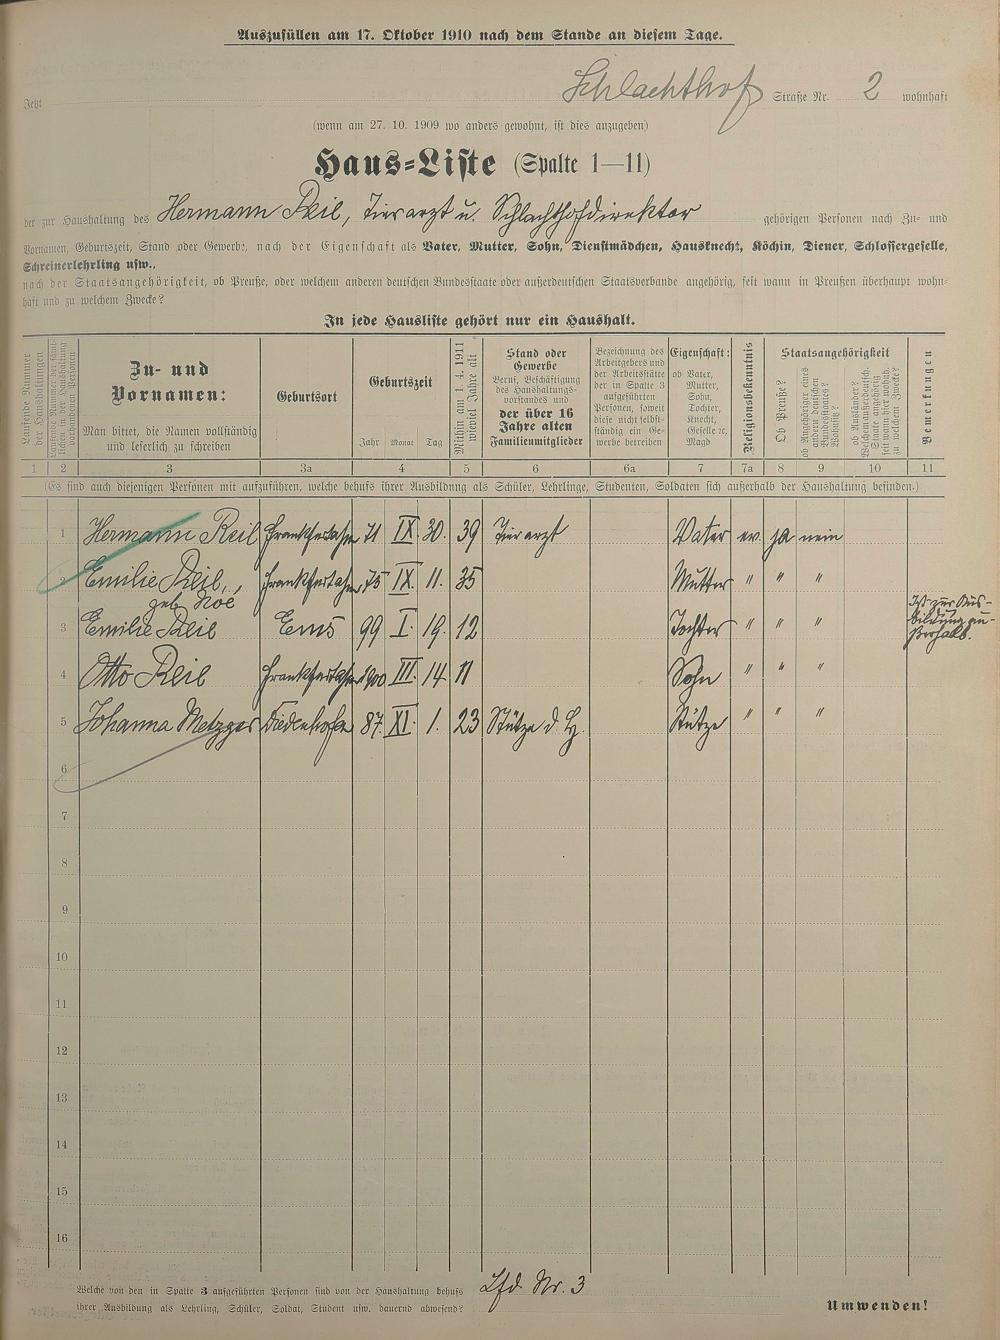 Auszufüllen am 17. Oktober 1910 nach dem Stande an diesem Tage.
Jetzt Schlachthof Straße Nr. 2 wohnhaft
(wenn am 27. 10. 1909 wo anders gewohnt, ist dies anzugeben)
Haus-Liste (Spalte 1—11)
der zur Haushaltung des Hermann Reil, Tierarzt u. Schlachthofdirektor gehörigen Personen nach Zu- und
Vornamen, Geburtszeit, Stand oder Gewerbe, nach der Eigenschaft als Vater, Mutter, Sohn, Dienstmädchen, Hausknecht, Köchin, Diener, Schlossergeselle,
Schreinerlehrling usw.,
nach der Staatsangehörigkeit, ob Preuße, oder welchem anderen deutschen Bundesstaate oder außerdeutschen Staatsverbande angehörig, seit wann in Preußen überhaupt wohn-
haft und zu welchem Zwecke?
In jede Hausliste gehört nur ein Haushalt.
Laufende Nummer
der Haushaltungen
Laufende Nummer der sämt-
lichen in der Haushaltung
vorhandenen Personen
Zu- und
Vornamen:
Man bittet, die Namen vollständig
und leserlich zu schreiben
Geburtsort
Geburtszeit
Jahr Monat Tag
Mithin am 1. 4. 1911
wieviel Jahre alt
Stand oder
Gewerbe
Beruf, Beschäftigung
des Haushaltungs-
vorstandes und
der über 16
Jahre alten
Familienmitglieder
Bezeichnung des
Arbeitgebers und
der Arbeitsstätte
der in Spalte 3
aufgeführten
Personen, soweit
diese nicht selbst-
ständig ein Ge-
werbe betreiben
Eigenschaft:
ob Vater,
Mutter,
Sohn,
Tochter,
Knecht,
Geselle 2c,
Magd
Religionsbekenntnis
Staatsangehörigkeit
Ob Preuße?
ob Angehöriger eines
anderen deutschen
Bundesstaates?
Wohnsitz?
ob Ausländer?
Welchem außerdeutsch.
Staate angehörig
seit wann hier wohnh.
zu welchem Zwecke?
Bemerkungen
1 2 3 3a 4 5 6 6a 7 7a 8 9 10 11
(Es sind auch diejenigen Personen mit aufzuführen, welche behufs ihrer Ausbildung als Schüler, Lehrlinge, Studenten, Soldaten sich außerhalb der Haushaltung befinden.)
1 Hermann Reil 71 IX. 30. 39 Tierarzt Vater ev. ja nein
2 Emilie Reil, 75 IX. 11. 35 Mutter " " "
geb. Noé
3 Emilie Reil Ems 99 I. 19. 12 Tochter " " " Ist zur Aus-
bildung au-
ßerhalb.
4 Otto Reil 1900 III. 14 11 Sohn " " "
5 Johanna Metzger Diedenhofen 87. XI. 1. 23 Stütze d. H. Stütze " " "
6
7
8
9
10
11
12
13
14
15
16
Welche von den in Spalte 3 aufgeführten Personen sind von der Haushaltung behufs
ihrer Ausbildung als Lehrling, Schüler, Soldat, Student usw. dauernd abwesend? Lfd. Nr. 3
Umwenden!